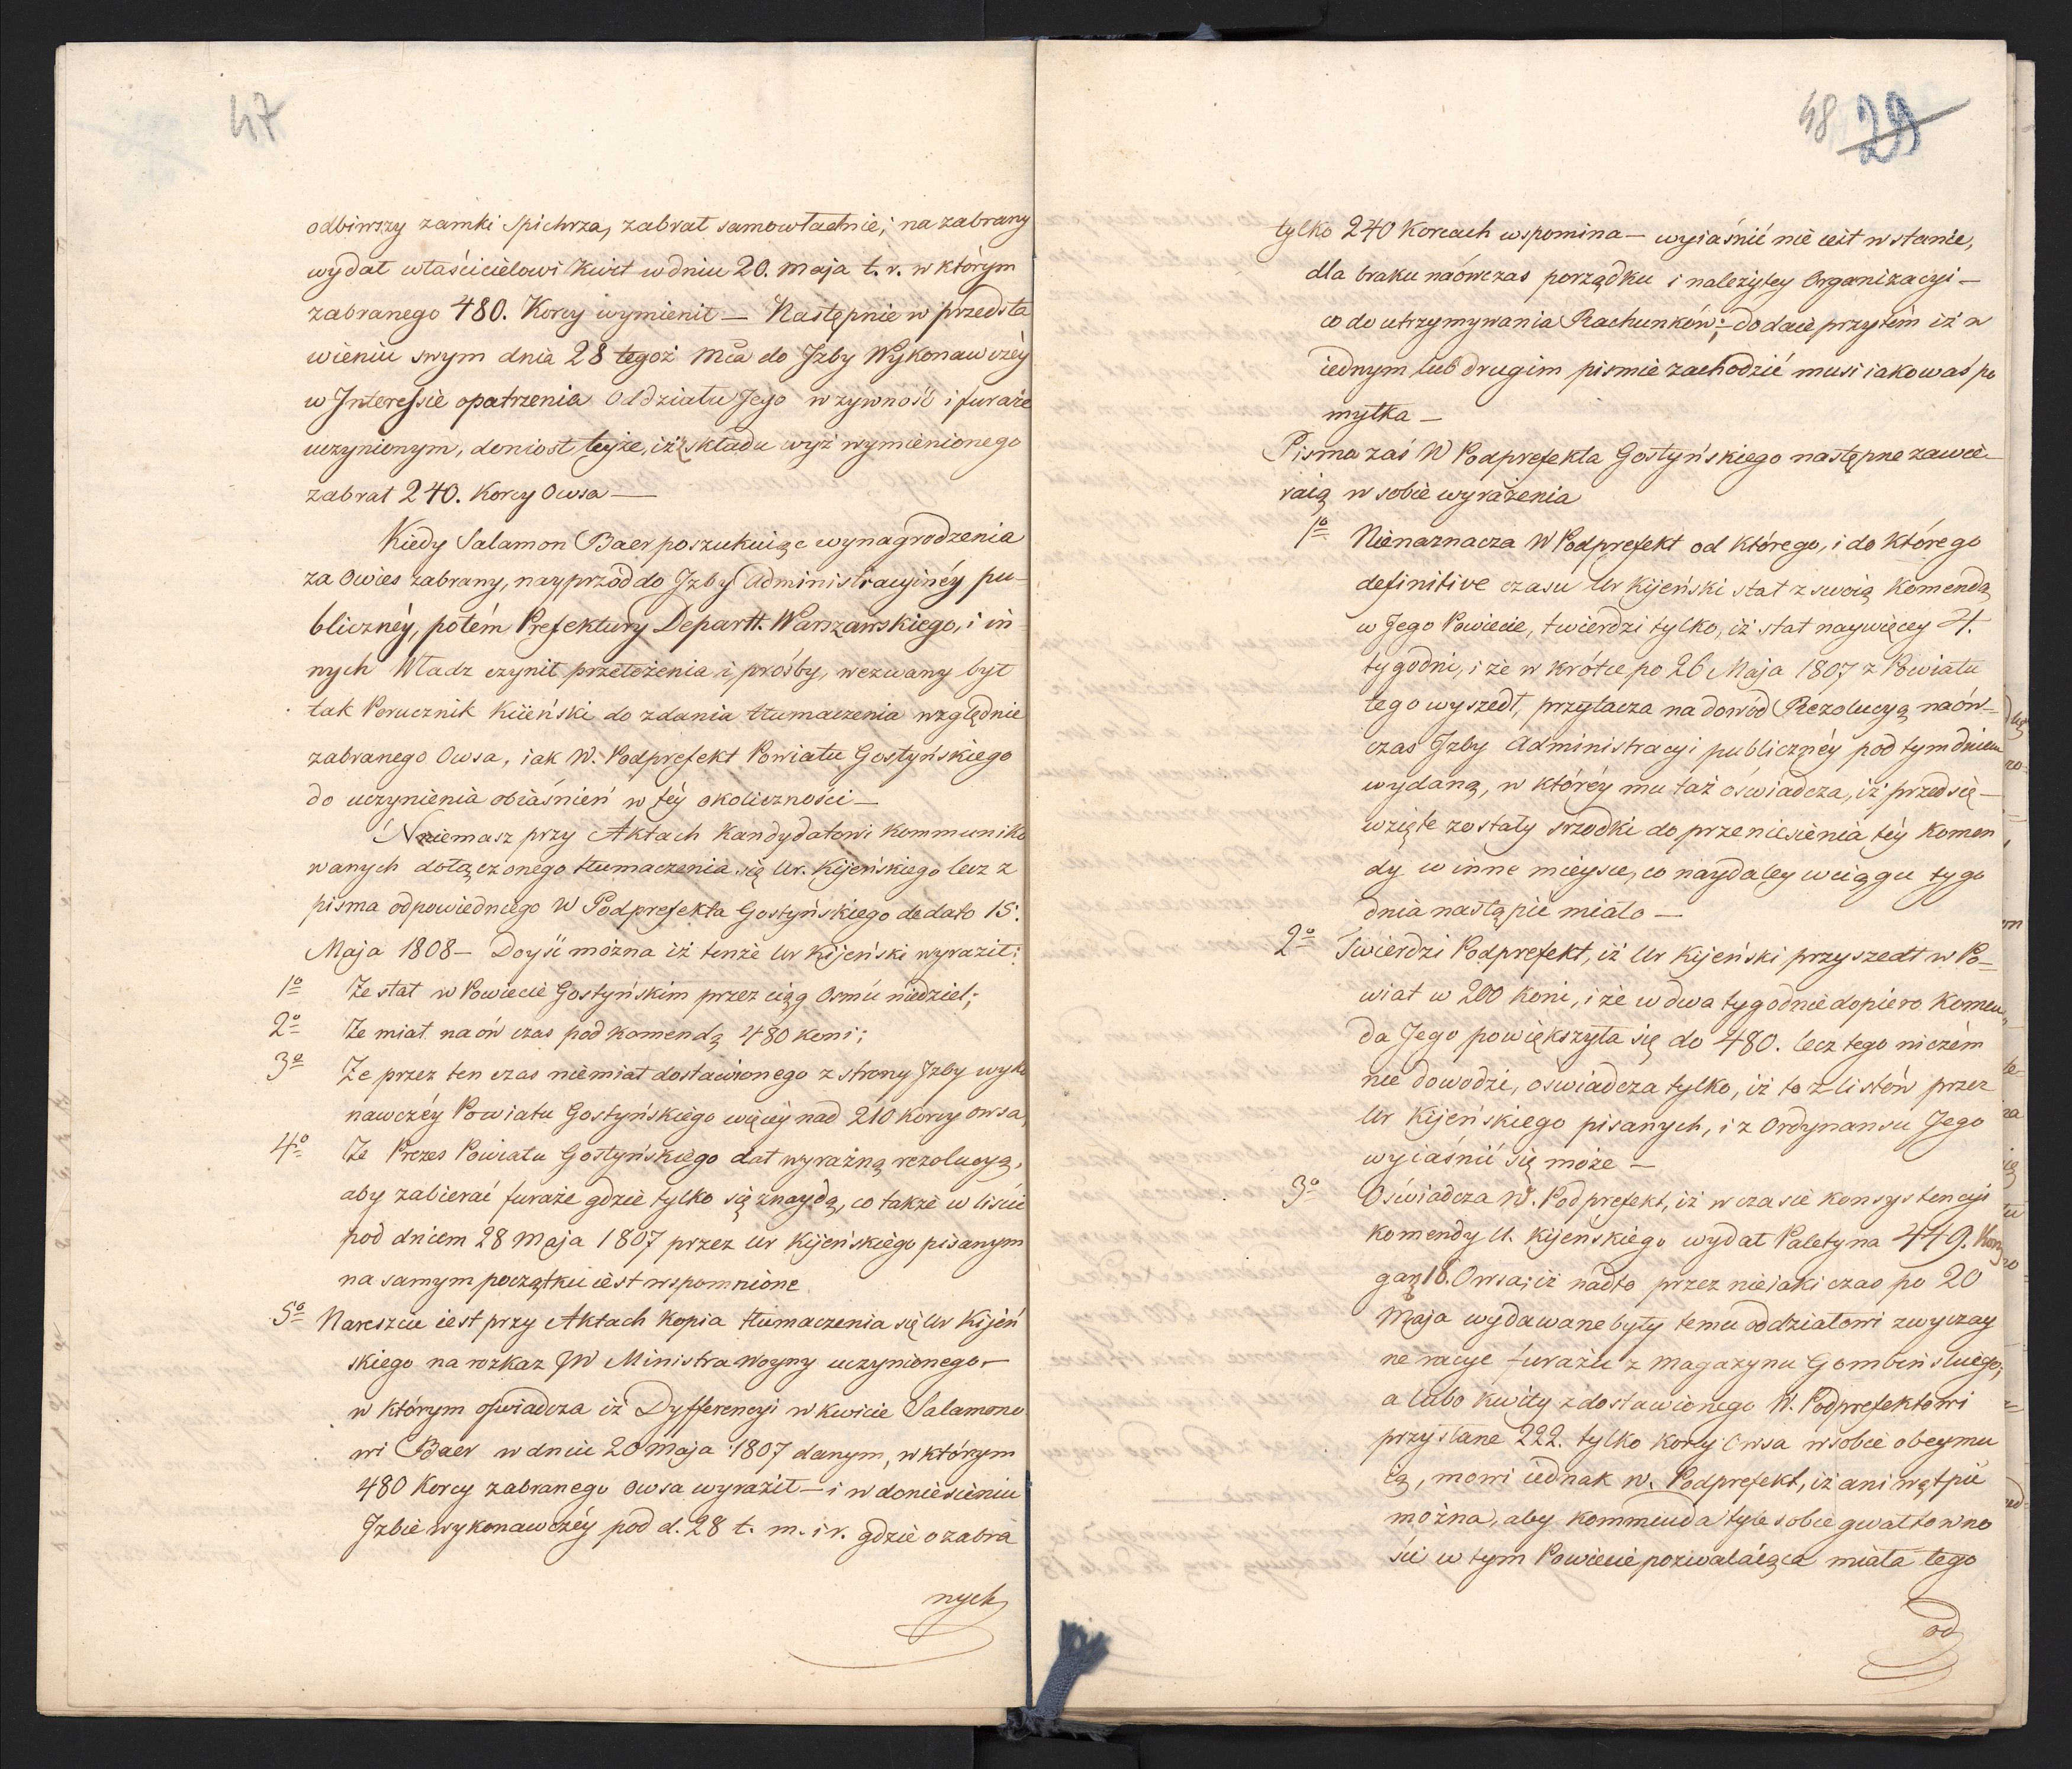 47
odbiwszy zamki Spichrza, zabrał samowładnie; na zabrany
wydał właścicielowi kwit w dniu 20. Maja t. r. w którym
zabranego 480. Korcy wymienił — Następnie w przedsta
wieniu swym dnia 28 tegoż Mca do Izby Wykonawczéy
w Interessie opatrzenia Oddziału Jego w zywność i furaże
uczynionym, doniosł teyże, iż z składu wyż wymienionego
zabrał 240. Korcy Owsa —
Kiedy Salamon Baer poszukuiąc wynagrodzenia
za Owies zabrany, nayprzód do Izby Administracyinéy pu-
bliczney, potém Prefektury Departt. Warszawskiego, i in-
nych Władz czynił przełożenia i prośby, wezwany był
tak Porucznik Kiieński do zdania tłumaczenia względnie
zabranego Owsa, iak W. Podprefekt Powiatu Gostyńskiego
do uczynienia obiaśnień w téy okoliczności —
Niemasz przy Aktach Kandydatowi Kommuniko
wanych dołączonego tłumaczenia się Ur. Kijeńskiego lecz z
pisma odpowiedniego W Podprefekta Gostyńskiego de dato 15.
Maja 1808 — Doyść można iż tenże Ur Kijeński wyraził:
1o Że stał w Powiecie Gostyńskim przez ciąg Osmiu niedziel;
2o Ze miał na ów czas pod komendą 480 koni;
3o Ze przez ten czas niemiał dostawionego z strony Izby wyko
nawczéy Powiatu Gostyńskiego więcéy nad 210 korcy owsa,
4o Że Prezes Powiatu Gostyńskiego dał wyraźną rezolucyą,
aby zabierać furaże gdzie tylko się znaydą, co także w liście
pod dniem 28 Maja 1807 przez Ur Kijeńskiego pisanym
na samym początku iest wspomnione
5o Nareszcie iest przy Aktach Kopia tłumaczenia się Ur Kijeń
skiego na rozkaz JW Ministra Woyny uczynionego —
w którym oświadcza iż Dyfferencyi w kwicie Salamono
wi Baer w dniu 20 Maja 1807 danym, w którym
480 Korcy zabranego owsa wyraził — i w doniesieniu
Izbie wykonawczéy pod d. 28 t. m. i r. gdzie o zabra
nych
48 29
tylko 240 Korcach wspomina — wyiaśnić nie iest w stanie,
dla braku naówczas porządku i należytey Organizacyi —
co do utrzymywania Rachunków; — dodaie przytém iż w
iednym lub drugim pismie zachodzić musi iakowaś po
myłka —
Pisma zaś W Podprefekta Gostyńskiego następne zawie-
raią w sobie wyrażenia
1o Nienaznacza W Podprefekt od którego, i do którego
definitive czasu Ur Kijeński stał z swoią Komendą
w Jego Powiecie, twierdzi tylko, iż stał naywięcey 4.
tygodni, i że w krótce po 26 Maja 1807 z Powiatu
tego wyszedł, przyłacza na dowód Rezolucyą naów-
czas Izby Administracyi publicznéy pod tym dniem
wydaną, w któréy mu taż oświadcza, iż przedsię-
wzięte zostały srzodki do przeniesienia téy komen
dy w inne mieysce, co naydaley w ciągu tygo
dnia nastąpić miało —
2o Twierdzi Podprefekt, iż Ur Kijeński przyszedł w Po-
wiat w 200 koni, i że w dwa tygodnie dopiero Komen
da Jego powiększyła się do 480. lecz tego niczém
nie dowodzi, oswiadcza tylko, iż to z listów przez
Ur Kijeńskiego pisanych, i z Ordynansu Jego
wyiaśnić się może —
3o Oświadcza W. Podprefekt, iż w czasie konsystencyi
komendy U. Kijeńskiego wydał Palety na 449. Korcy
gar 16. Owsa; iż nadto przez nieiaki czas po 20
Maja wydawane były temu oddziałowi zwyczay
ne racye furażu z magazynu Gombińskiego;
a lubo kwity z dostawionego W. Podprefektowi
przysłane 222. tylko korcy Owsa w sobie obeymu
ią, mowi iednak W. Podprefekt, iż ani wątpić
można, aby kommenda tyle sobie gwałtowno
ści w tym Powiecie pozwalaiąca miała tego
od